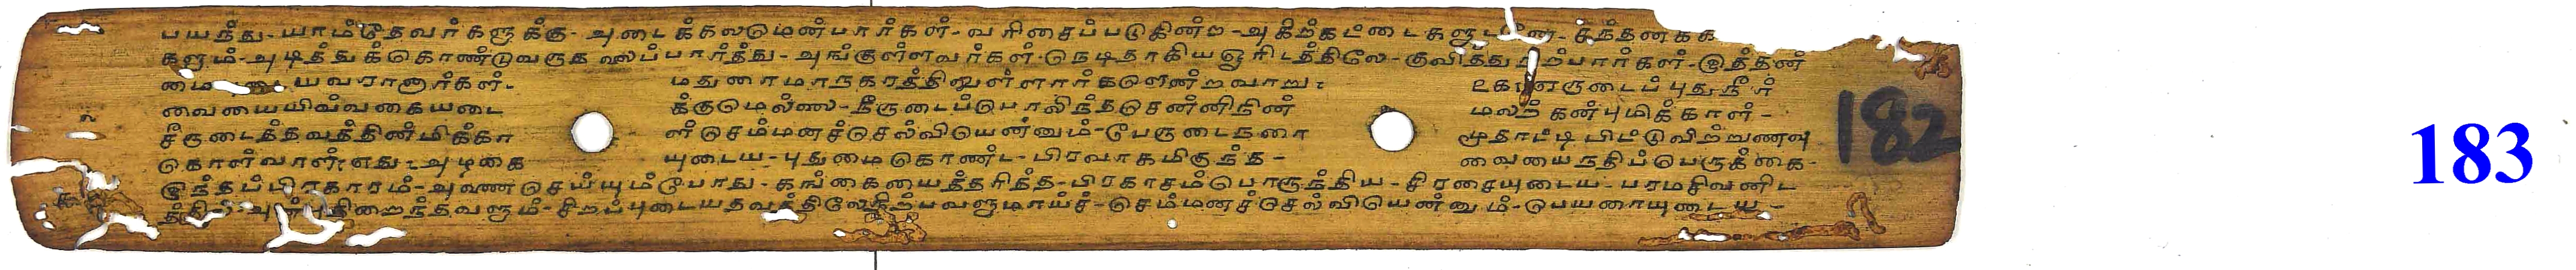 பயந்து-யாம்தேவர்களுக்கு-அடைக்கலமென்பார்கள்-வரிசைப்படுகின்ற-அகிற்கட்டைகளுடன்-சந்தனக்க
களும்-அடித்துக்கொண்டுவருதலைப்பார்த்து-அங்குள்ளவர்கள்-நெடிதாகியஓரிடத்திலே-குவித்துநிற்பார்கள்-இத்தன்
மை யவரானார்கள்- மதுரைமாநகரத்திலுள்ளார்களென்றவாறு:
வையையிவ்வகையடை க்குமெல்லை-நீருடைப்பொலிந்தசென்னிநின்மலற்கன்புமிக்காள்-
சீருடைத்தவத்தின்மிக்கா ள்செம்மனச்செல்வியென்னும்-பேருடைநரை மூதாட்டி பிட்டுவிற்றுணவு
கொள்வாள்: எது: அழகை யுடைய-புதுமைகொண்ட-பிரவாகமிகுந்த- வையைநதிப்பெருக்கை-
இந்தப்பிரகாரம்-அணைசெய்யும்போது-கங்கையைத்தரித்த-பிரகாசம்பொருந்திய-சிரசையுடைய-பரமசிவனிட
த்தில்-அன்புநிறைந்தவளும்-சிறப்புடையதவத்திலேநிற்பவளுமாய்ச்-செம்மனச்செல்வியென்னும்-பெயரையுடைய-
182
183